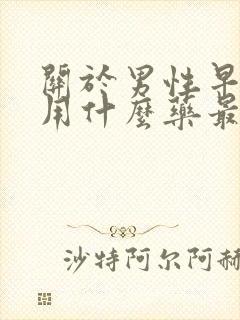 關於男性早
用什麼藥最
沙特阿尔阿赫